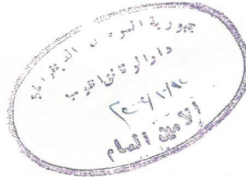 جمهورية السودان الديمقراطية
دار الوثائق القومية
الأمين العام